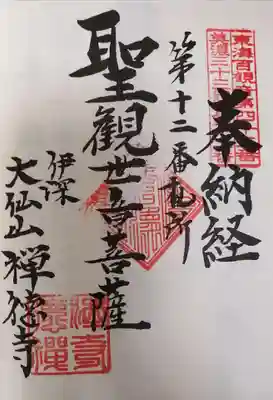 奉納経
第十二番札所
聖観世音菩薩
伊深
大仙山禅徳寺